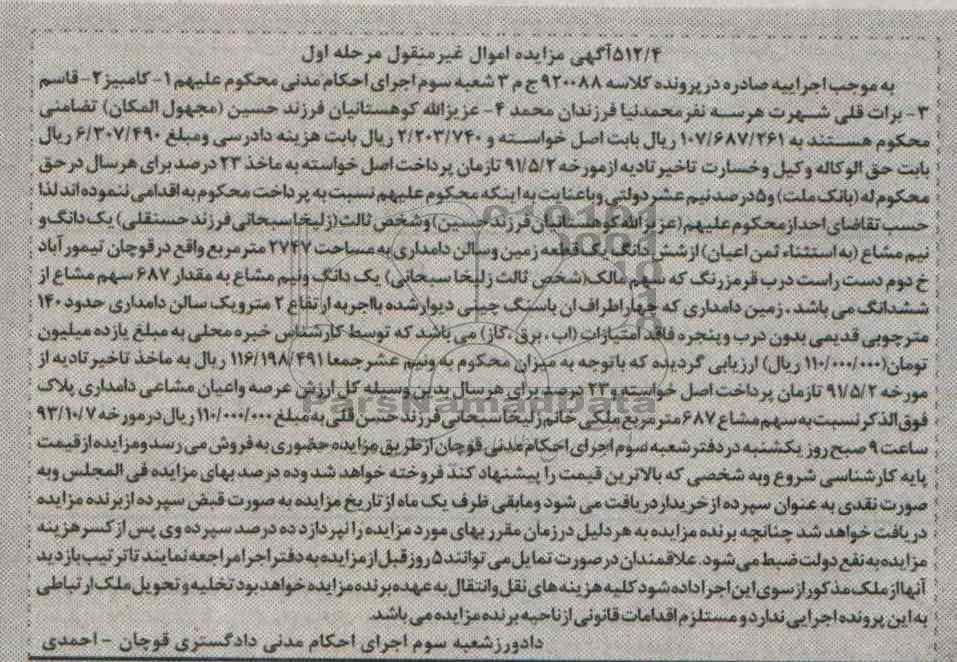 ۵۱۲/۴آگهی مزایده اموال غیرمنقول مرحله اول
به موجب اجراییه صادره در پرونده کلاسه ۹۲۰۰۸۸ ج م ۳ شعبه سوم اجرای احکام مدنی محکوم علیهم ۱- کامبیز ۲- قاسم
۳- برات قلی شهرت هرسه نفر محمدنیا فرزندان محمد ۴- عزیزالله کوهستانیان فرزند حسین (مجهول المکان) تضامنی
محکوم هستند به ۱۰۷/۶۸۷/۲۶۱ ریال بابت اصل خواسته و ۲/۲۰۳/۷۴۰ ریال بابت هزینه دادرسی ومبلغ ۶/۳۰۷/۴۹۰ ریال
بابت حق الوکاله وکیل وخسارت تاخیر تادیه ازمورخه ۹۱/۵/۲ تازمان پرداخت اصل خواسته به ماخذ ۲۳ درصد برای هرسال درحق
محکوم له (بانک ملت) و۵درصد نیم عشر دولتی وباعنایت به اینکه محکوم علیهم نسبت به پرداخت محکوم به اقدامی ننموده اند لذا
حسب تقاضای احداز محکوم علیهم (عزیزالله کوهستانیان فرزند حسین) وشخص ثالث (زلیخا سبحانی فرزند حسنقلی) یک دانگ و
نیم مشاع (به استثناء ثمن اعیان) ازشش دانگ یک قطعه زمین وسالن دامداری به مساحت ۲۷۴۷ مترمربع واقع درقوچان تیمور آباد
خ دوم دست راست درب قرمزرنگ که سهم مالک(شخص ثالث زلیخا سبحانی) یک دانگ ونیم مشاع به مقدار ۶۸۷ سهم مشاع از
ششدانگ می باشد. زمین دامداری که چهاراطراف ان باسنگ چینی دیوارشده بااجربه ارتفاع ۲ مترویک سالن دامداری حدود۱۴۰
مترچوبی قدیمی بدون درب وپنجره فاقد امتیازات (اب، برق، گاز) می باشد که توسط کارشناس خبره محلی به مبلغ یازده میلیون
تومان(۱۱۰/۰۰۰/۰۰۰ ریال) ارزیابی گردیده که باتوجه به میزان محکوم به ونیم عشرجمعا ۱۱۶/۱۹۸/۴۹۱ ریال به ماخذ تاخیر تادیه از
مورخه ۹۱/۵/۲ تازمان پرداخت اصل خواسته و۲۳ درصد برای هرسال بدین وسیله کل ارزش عرصه واعیان مشاعی دامداری پلاک
فوق الذکر نسبت به سهم مشاع ۶۸۷ مترمربع ملکی خانم زلیخا سبحانی فرزند حسن قلی به مبلغ ۱۱۰/۰۰۰/۰۰۰ ریال درمورخه ۹۳/۱۰/۷
ساعت ۹ صبح روز یکشنبه دردفتر شعبه سوم اجرای احکام مدنی قوچان ازطریق مزایده حضوری به فروش می رسد ومزایده ازقیمت
پایه کارشناسی شروع وبه شخصی که بالاترین قیمت را پیشنهاد کند فروخته خواهد شد وده درصد بهای مزایده فی المجلس وبه
صورت نقدی به عنوان سپرده ازخریداردریافت می شود ومابقی ظرف یک ماه از تاریخ مزایده به صورت قبض سپرده ازبرنده مزایده
دریافت خواهد شد چنانچه برنده مزایده به هر دلیل درزمان مقرر بهای مورد مزایده را نپردازد ده درصد سپرده وی پس از کسر هزینه
مزایده به نفع دولت ضبط می شود. علاقمندان درصورت تمایل می توانند ۵ روز قبل از مزایده به دفتراجرا مراجعه نمایند تاترتیب بازدید
آنهااز ملک مذکوراز سوی این اجراداده شود کلیه هزینه های نقل وانتقال به عهده برنده مزایده خواهد بود تخلیه وتحویل ملک ارتباطی
به این پرونده اجرایی ندارد ومستلزم اقدامات قانونی ازناحیه برنده مزایده می باشد.
دادورزشعبه سوم اجرای احکام مدنی دادگستری قوچان - احمدی
ParsNamadData